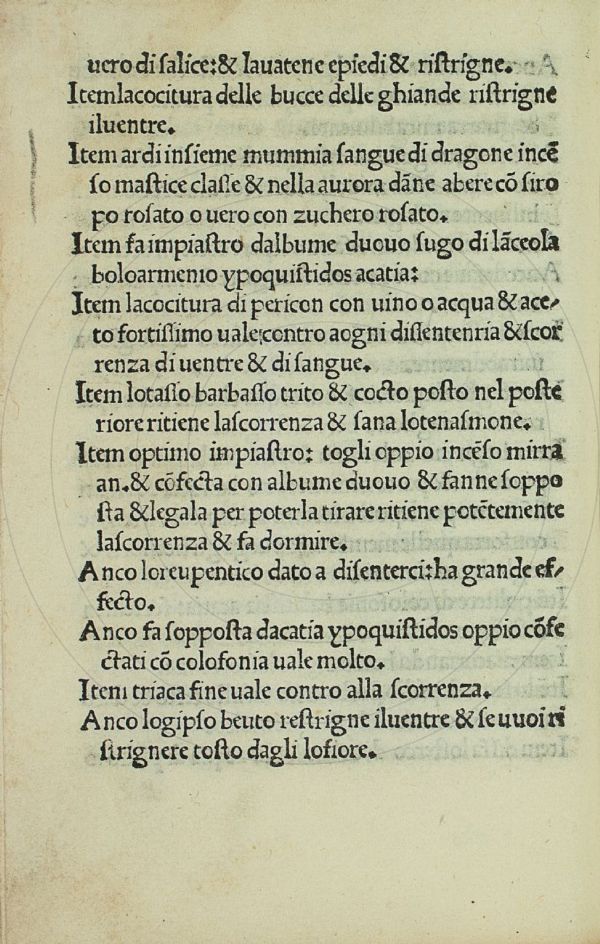 uero di ſalice:& lauatene epiedi & riſtrigne.
Itemlacocitura delle bucce delle ghiande riſtrigne
iluentre.
Item ardi inſieme mummia ſangue di dragone incē
ſo maſtice claſſe & nella aurora dāne abere cō ſiro
po roſato o uero con zuchero roſato.
Item fa impiaſtro dalbume duouo ſugo di lāceola
boloarmenio ypoquiſtidos acatia:
Item lacocitura di pericon con uino o acqua & ace/
to fortiſſimo uale contro aogni diſſentenria & ſcor
renza di uentre & di ſangue.
Item lotaſſo barbaſſo trito & cocto poſto nel poſte
riore ritiene laſcorrenza & ſana lotenaſmone.
Item optimo impiaſtro: togli oppio incēſo mirra
an.& cōfecta con albume duouo & fanne ſoppo
ſta & legala per poterla tirare ritiene potētemente
laſcorrenza & fa dormire.
Anco loreupentico dato a diſenterci:ha grande ef/
fecto.
Anco fa ſoppoſta dacatia ypoquiſtidos oppio cōfe
ctati cō colofonia uale molto.
Item triaca fine uale contro alla ſcorrenza.
Anco logipſo beuto reſtrigne iluentre & ſe uuoi ri
ſtrignere toſto dagli lofiore.